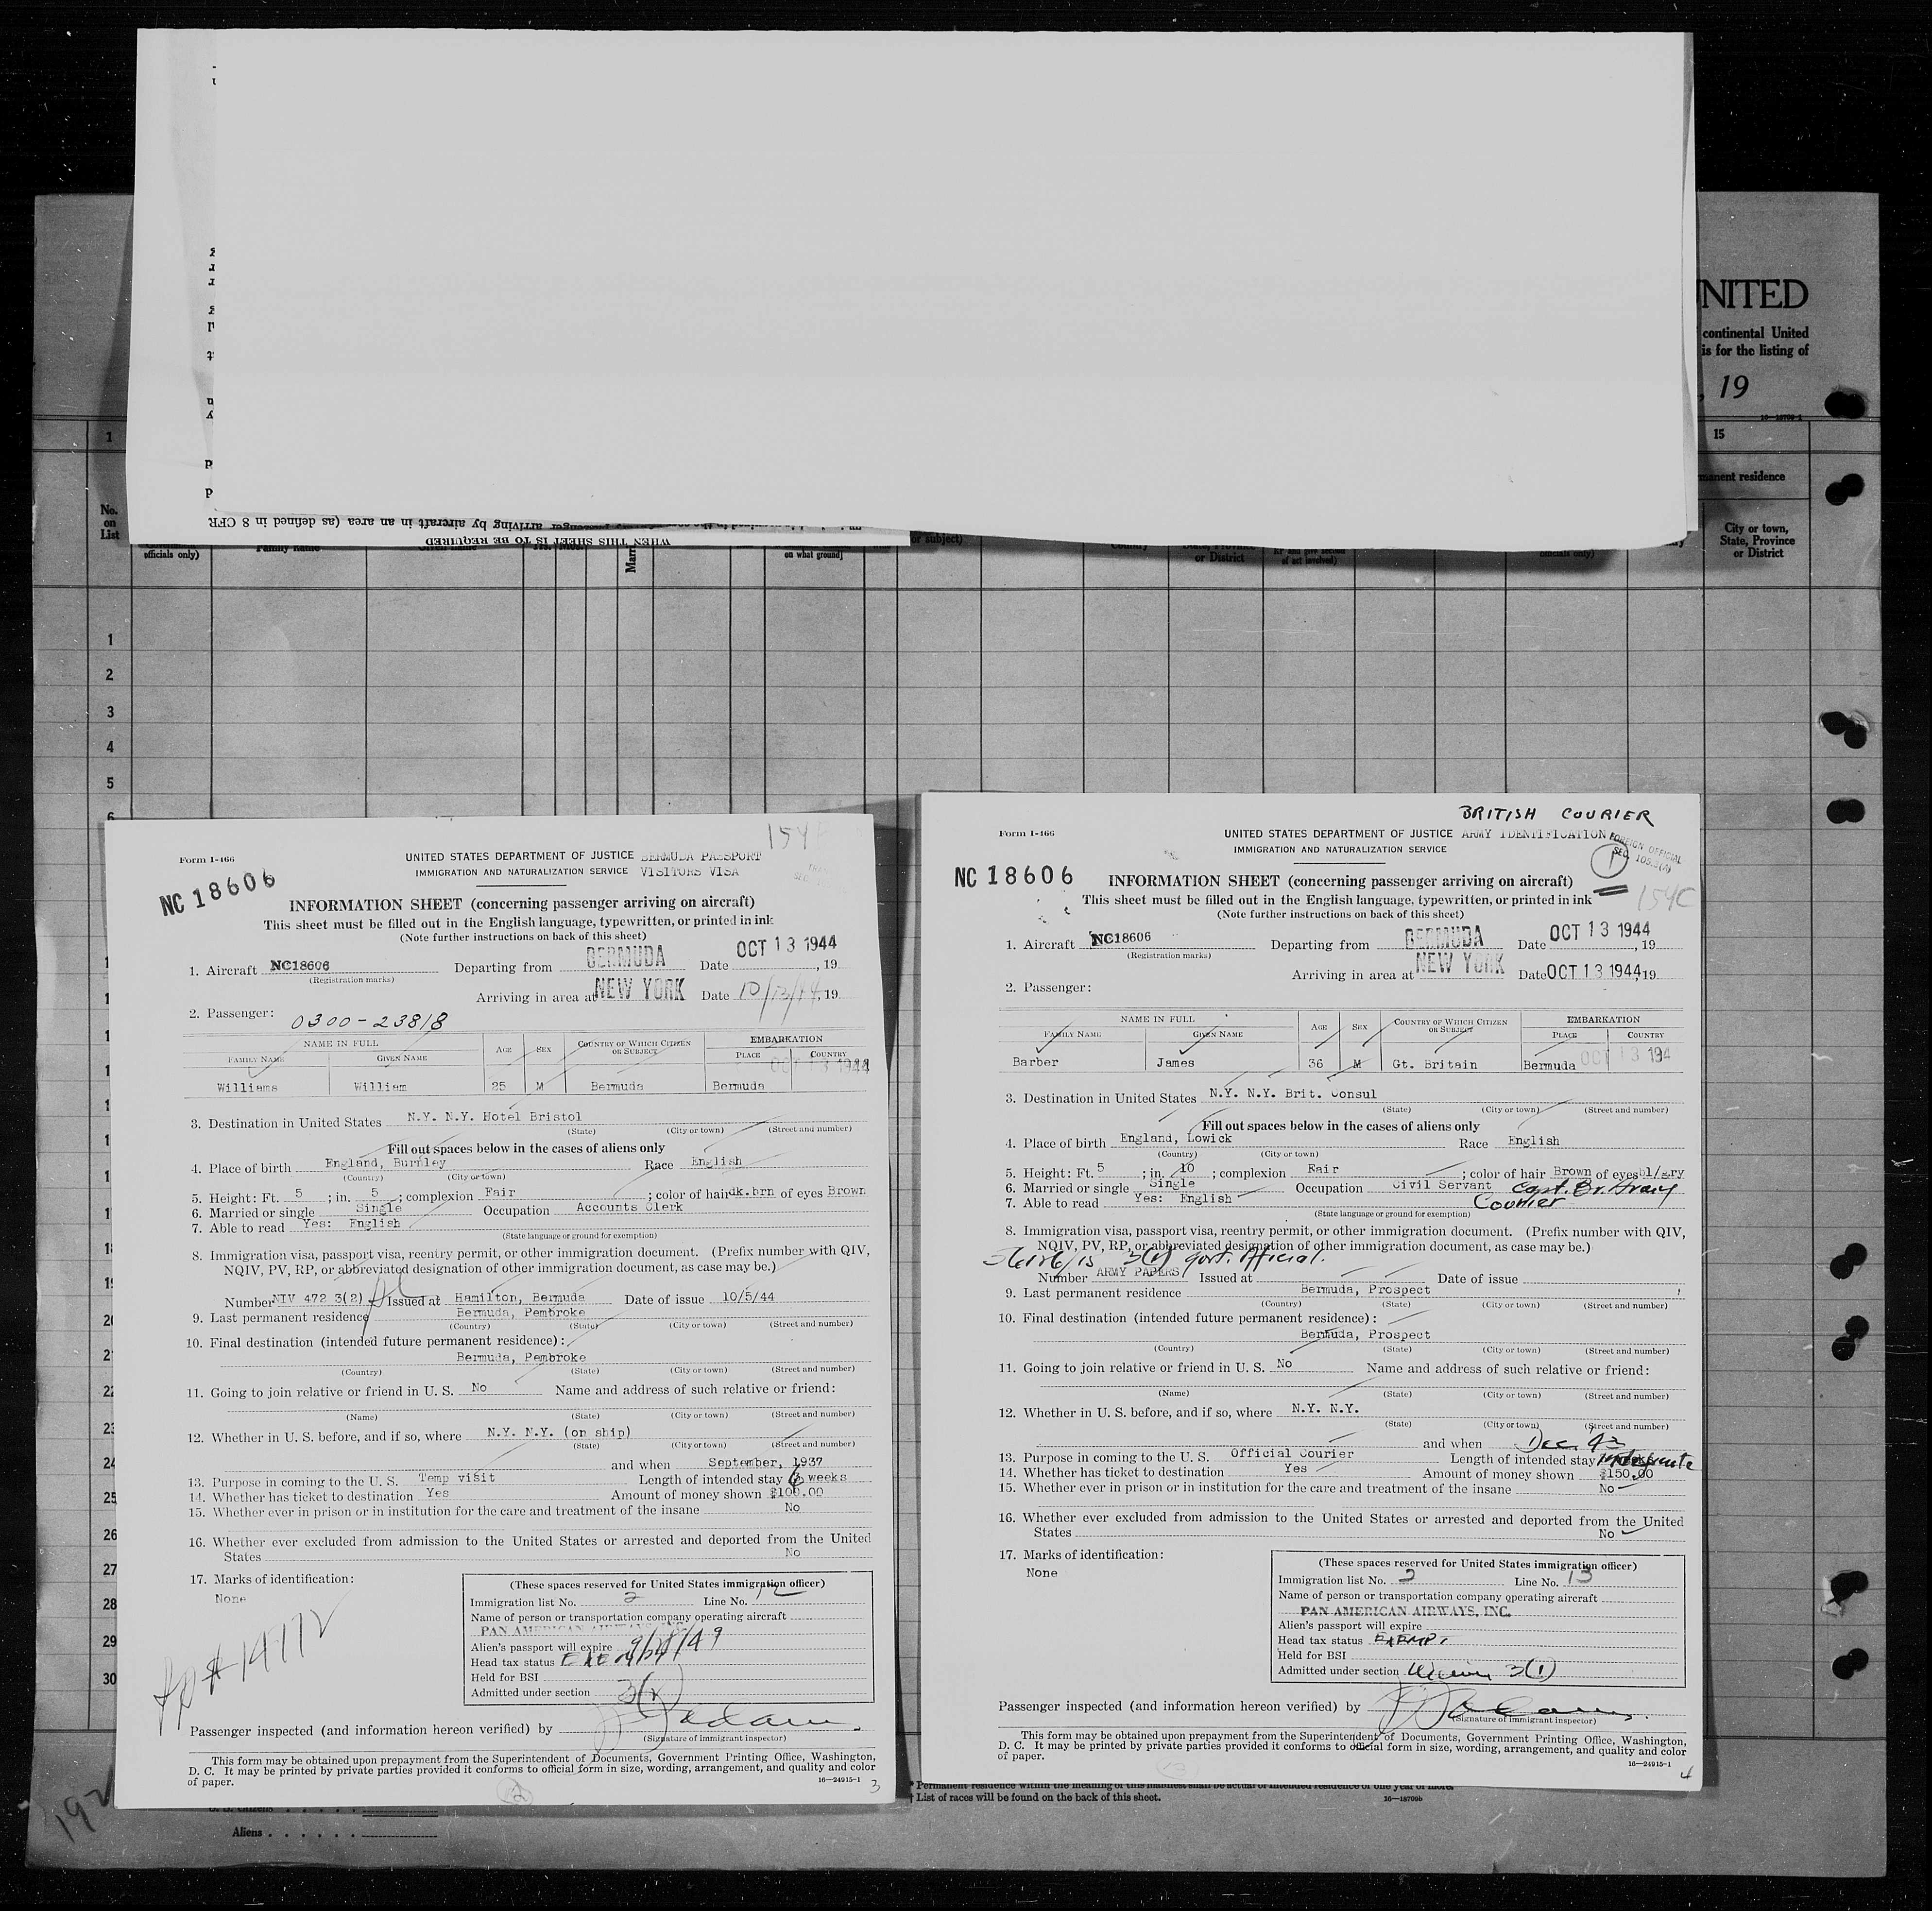 NITED
continental United
is for the listing of
, 19
16—18709-1
1
15
manent residence
No.
on
List
City or town,
State, Province
or District
officials only)
Family name
on what ground]
or subject)
Country
or District
of act involved)
officials only)
WHEN THIS SHEET IS TO BE REQUIRED
arriving by aircraft in an area (as defined in 8 CFR
1
2
3
4
5
6
154
Form I-466
UNITED STATES DEPARTMENT OF JUSTICE BERMUDA PASSPORT
IMMIGRATION AND NATURALIZATION SERVICE VISITORS VISA
NC 18606
INFORMATION SHEET (concerning passenger arriving on aircraft)
This sheet must be filled out in the English language, typewritten, or printed in ink
(Note further instructions on back of this sheet)
1. Aircraft NC18606 Departing from BERMUDA Date OCT 13 1944, 19
(Registration marks)
Arriving in area at NEW YORK Date 10/13/44, 19
2. Passenger: 0300-23818
NAME IN FULL AGE SEX COUNTRY OF WHICH CITIZEN OR SUBJECT EMBARKATION
FAMILY NAME GIVEN NAME PLACE COUNTRY
OCT 13 1944
Williams William 25 M Bermuda Bermuda
3. Destination in United States N.Y. N.Y. Hotel Bristol
(State) (City or town) (Street and number)
Fill out spaces below in the cases of aliens only
4. Place of birth England, Burnley Race English
(Country) (City or town)
5. Height: Ft. 5 ; in. 5 ; complexion Fair ; color of hair dk.brn of eyes Brown
6. Married or single Single Occupation Accounts Clerk
7. Able to read Yes: English
(State language or ground for exemption)
8. Immigration visa, passport visa, reentry permit, or other immigration document. (Prefix number with QIV,
NQIV, PV, RP, or abbreviated designation of other immigration document, as case may be.)
Number NIV 472 3(2) Issued at Hamilton, Bermuda Date of issue 10/5/44
9. Last permanent residence Bermuda, Pembroke
(Country) (State) (City or town) (Street and number)
10. Final destination (intended future permanent residence):
Bermuda, Pembroke
(Country) (State) (City or town) (Street and number)
11. Going to join relative or friend in U. S. No Name and address of such relative or friend:
(Name) (State) (City or town) (Street and number)
12. Whether in U. S. before, and if so, where N.Y. N.Y. (on ship)
(State) (City or town) (Street and number)
and when September, 1937
13. Purpose in coming to the U. S. Temp visit Length of intended stay 6 weeks
14. Whether has ticket to destination Yes Amount of money shown $100.00
15. Whether ever in prison or in institution for the care and treatment of the insane No
16. Whether ever excluded from admission to the United States or arrested and deported from the United
States No
17. Marks of identification:
None
(These spaces reserved for United States immigration officer)
Immigration list No. 2 Line No. 12
Name of person or transportation company operating aircraft
PAN AMERICAN AIRWAYS, INC.
Alien's passport will expire 9/28/49
Head tax status EXEMPT
Held for BSI
Admitted under section 3(2)
Passenger inspected (and information hereon verified) by
(Signature of immigrant inspector)
This form may be obtained upon prepayment from the Superintendent of Documents, Government Printing Office, Washington,
D. C. It may be printed by private parties provided it conforms to official form in size, wording, arrangement, and quality and color
of paper.
16—24915-1
3
12
BRITISH COURIER
Form I-466
UNITED STATES DEPARTMENT OF JUSTICE ARMY IDENTIFICATION
IMMIGRATION AND NATURALIZATION SERVICE
FOREIGN OFFICIAL
1
NC 18606
INFORMATION SHEET (concerning passenger arriving on aircraft)
154C
This sheet must be filled out in the English language, typewritten, or printed in ink
(Note further instructions on back of this sheet)
1. Aircraft NC18606 Departing from BERMUDA Date OCT 13 1944, 19
(Registration marks)
Arriving in area at NEW YORK Date OCT 13 1944, 19
2. Passenger:
NAME IN FULL AGE SEX COUNTRY OF WHICH CITIZEN OR SUBJECT EMBARKATION
FAMILY NAME GIVEN NAME PLACE COUNTRY
OCT 13 194
Barber James 36 M Gt. Britain Bermuda
3. Destination in United States N.Y. N.Y. Brit. Consul
(State) (City or town) (Street and number)
Fill out spaces below in the cases of aliens only
4. Place of birth England, Lowick Race English
(Country) (City or town)
5. Height: Ft. 5 ; in. 10 ; complexion Fair ; color of hair Brown of eyes bl/gry
6. Married or single Single Occupation Civil Servant Capt. Br. Army
7. Able to read Yes: English Courier
(State language or ground for exemption)
8. Immigration visa, passport visa, reentry permit, or other immigration document. (Prefix number with QIV,
NQIV, PV, RP, or abbreviated designation of other immigration document, as case may be.)
3(1) govt. official.
Number ARMY PAPERS Issued at Date of issue
9. Last permanent residence Bermuda, Prospect
(Country) (State) (City or town) (Street and number)
10. Final destination (intended future permanent residence):
Bermuda, Prospect
(Country) (State) (City or town) (Street and number)
11. Going to join relative or friend in U. S. No Name and address of such relative or friend:
(Name) (State) (City or town) (Street and number)
12. Whether in U. S. before, and if so, where N.Y. N.Y.
(State) (City or town) (Street and number)
and when Dec. 43
13. Purpose in coming to the U. S. Official Courier Length of intended stay
14. Whether has ticket to destination Yes Amount of money shown $150.00
15. Whether ever in prison or in institution for the care and treatment of the insane No
16. Whether ever excluded from admission to the United States or arrested and deported from the United
States No
17. Marks of identification:
None
(These spaces reserved for United States immigration officer)
Immigration list No. 2 Line No. 13
Name of person or transportation company operating aircraft
PAN AMERICAN AIRWAYS, INC.
Alien's passport will expire
Head tax status EXEMPT
Held for BSI
Admitted under section 3(1)
Passenger inspected (and information hereon verified) by
(Signature of immigrant inspector)
This form may be obtained upon prepayment from the Superintendent of Documents, Government Printing Office, Washington,
D. C. It may be printed by private parties provided it conforms to official form in size, wording, arrangement, and quality and color
of paper.
16—24915-1
4
20
21
22
23
24
25
26
27
28
29
30
* Permanent residence within the meaning of this manifest shall be actual or intended residence of one year or more.
† List of races will be found on the back of this sheet.
16—18709b
U. S. citizens
Aliens